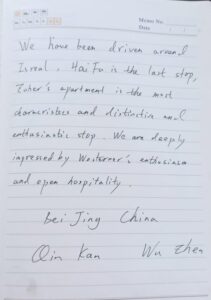 Memo No.
Date / /
We have been driven around
Isreal. HaiFa is the last stop,
Zoher's apartment is the most
characristess and distinctive and
enthusinastic stop. We are deeply
impressed by enthusiasm
and open hospitality.
Bei Jing China
Qin Kan Wu Zhen